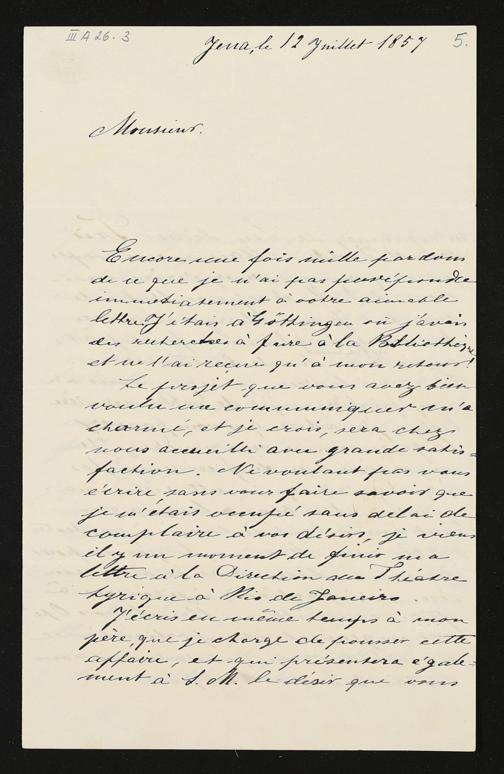 III A 26. 3
5.
Jena, le 12 Juillet 1857
Monsieur.
Encore une fois mille pardons
de ce que je n'ai pas pu répondre
immédiatement à votre aimable
lettre. J'étais à Göttingen où j'avais
des recherches à faire à la Bibliothèque
et ne l'ai reçue qu'à mon retour!
Le projet que vous avez bien
voulu me communiquer m'a
charmé, et je crois, sera chez
nous accueilli avec grande satis=
faction. Ne voulant pas vous
écrire, sans vous faire savoir que
je m'étais occupé sans delai de
complaire à vos désirs, je viens
il y un moment de finir ma
lettre à la Direction du Théâtre
Lyrique à Rio de Janeiro.
J'écris en même temps à mon
père, que je charge de pousser cette
affaire, et qui présentera égale-
ment à S. M. le désir que vous